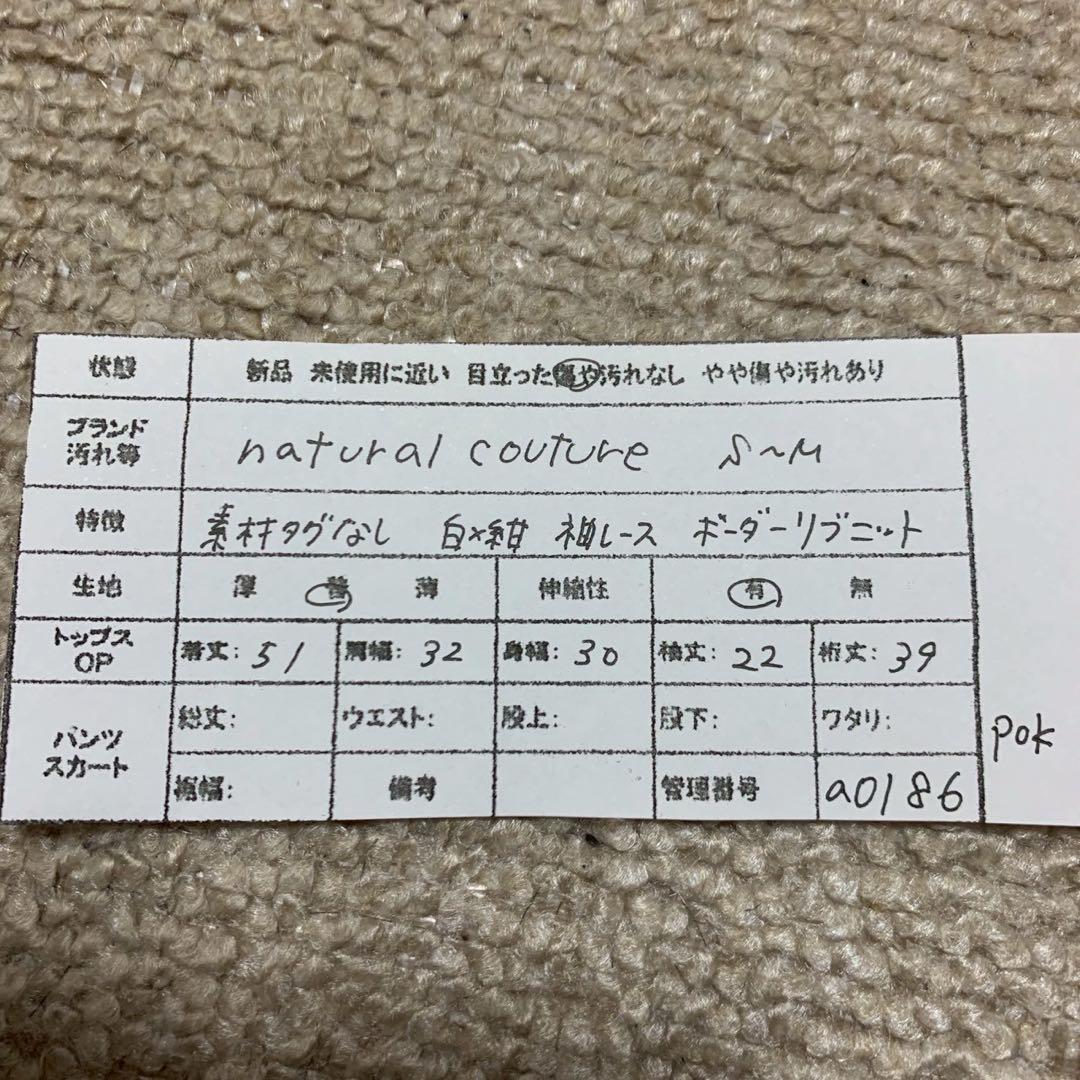 状態 新品 未使用に近い 目立った傷や汚れなし やや傷や汚れあり
ブランド
汚れ等 natural couture S~M
特徴 素材タグなし 白×紺 袖レース ボーダーリブニット
生地 厚 普 薄 伸縮性 有 無
トップス
OP 着丈: 51 肩幅: 32 身幅: 30 袖丈: 22 裄丈: 39
パンツ
スカート 総丈: ウエスト: 股上: 股下: ワタリ:
裾幅: 備考 管理番号 a0186
pok